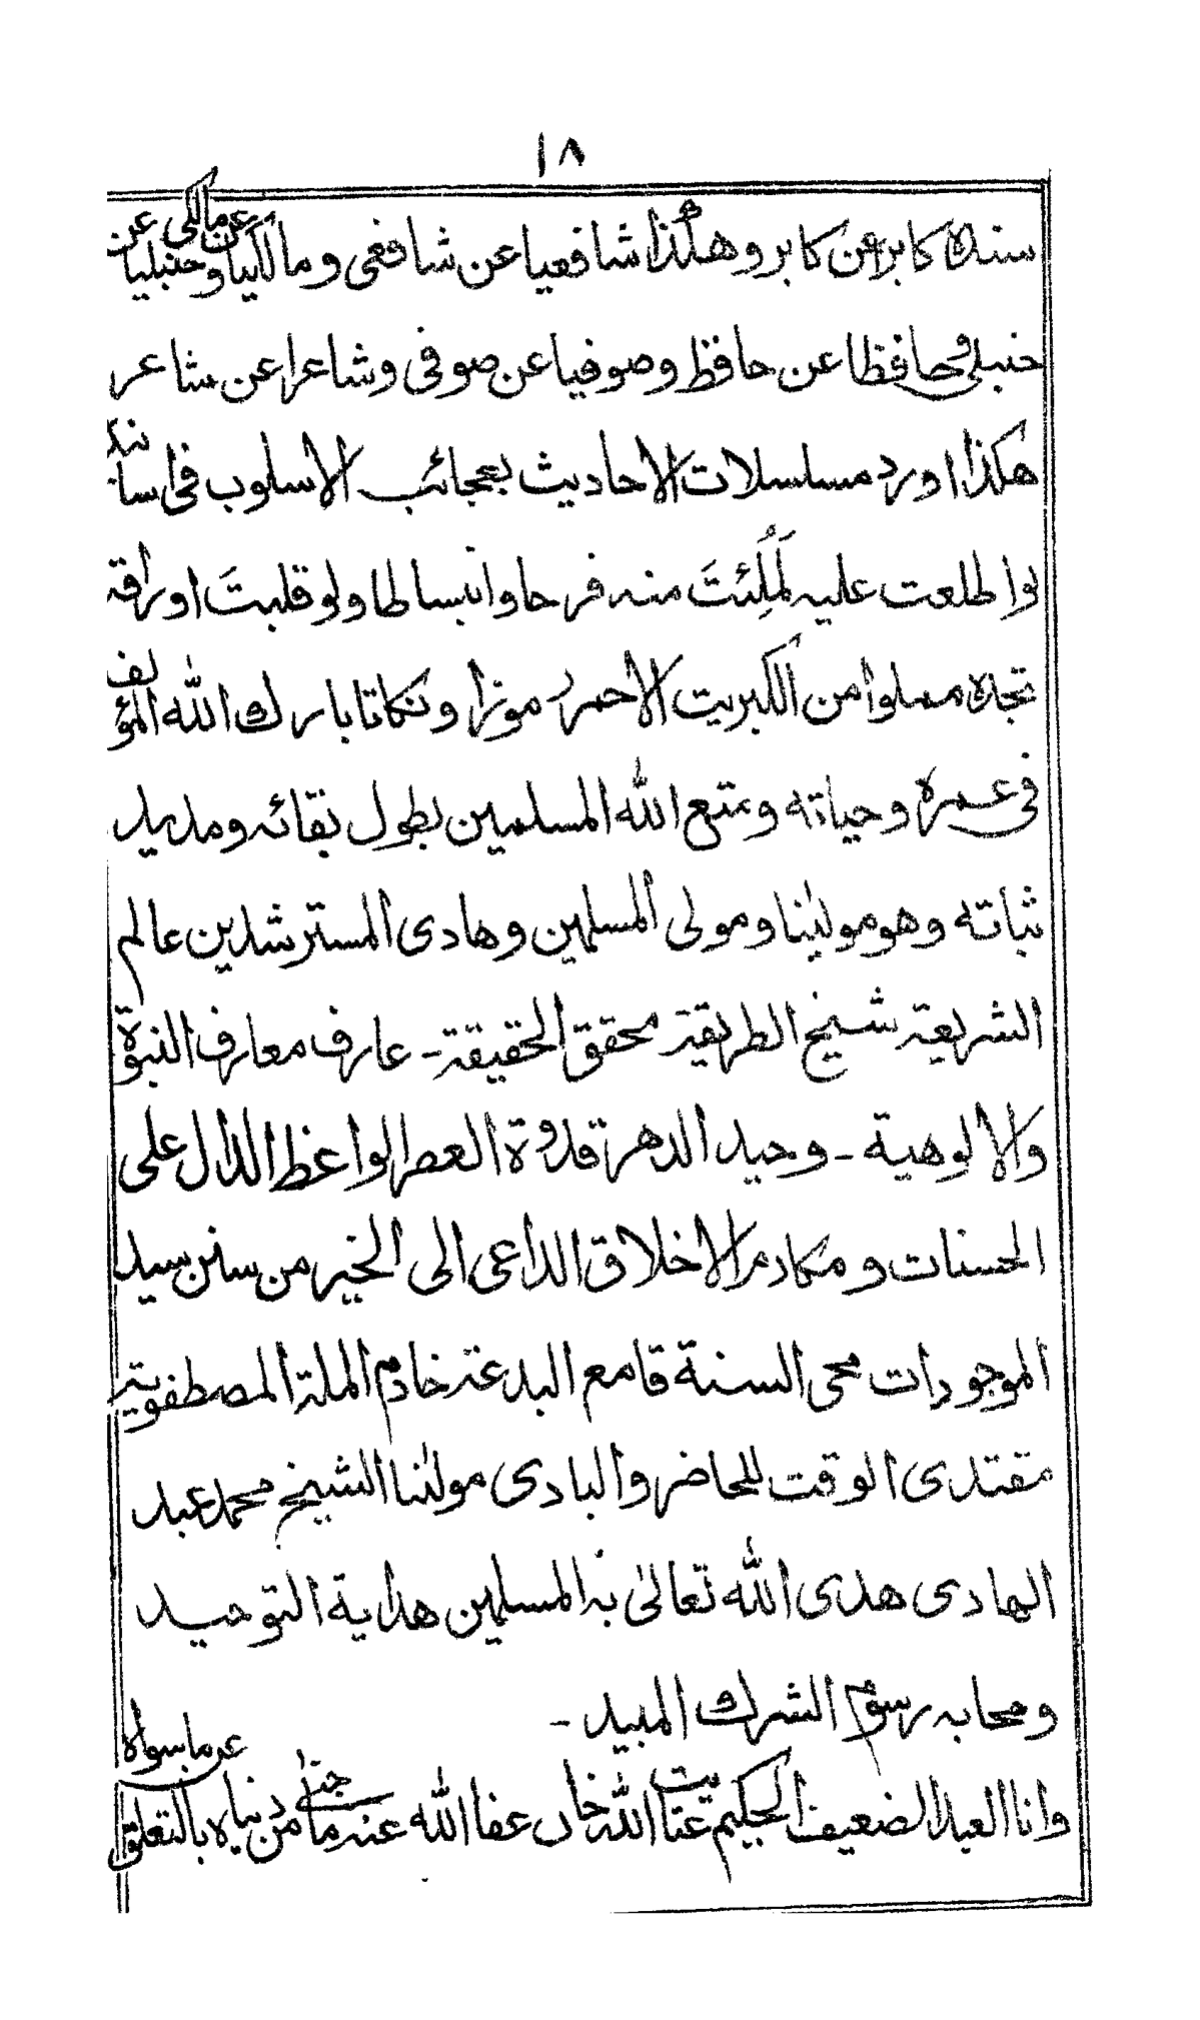 ١٨
سنده كابرا عن كابر وهكذا شافعيا عن شافعى ومالكيا عن مالكى وحنبليا عن
حنبلى وحافظا عن حافظ وصوفيا عن صوفى وشاعرا عن شاعر
هكذا اورد مسلسلات الاحاديث بعجائب الاسلوب فى اسانيد
لو اطلعت عليه لَمُلِئتَ منه فرحا وانبساطا ولو قلبتَ اوراقه
تجده مملوا من الكبريت الاحمر رموزا ونكاتا بارك الله المؤلف
فى عمره وحياته ومتع الله المسلمين بطول بقائه ومديد
ثباته وهو مولٰينا ومولى المسلمين وهادى المسترشدين عالم
الشريعة شيخ الطريقة محقق الحقيقة - عارف معارف النبوة
والالوهية - وحيد الدهر قدوة العصر الواعظ الدال على
الحسنات ومكارم الاخلاق الداعى الى الخير من سنن سيد
الموجودات محى السنة قامع البدعة خادم الملة المصطفوية
مقتدى الوقت للحاضر والبادى مولٰنا الشيخ محمد عبد
الهادى هدى الله تعالىٰ به المسلمين هداية التوحيد
ومحا به رسوم الشرك المبيد -
وانا العبد الضعيف الحكيم عنايت الله خان عفا الله عنه ما جنىٰ من دنياه بالتعلق عن ما سواه